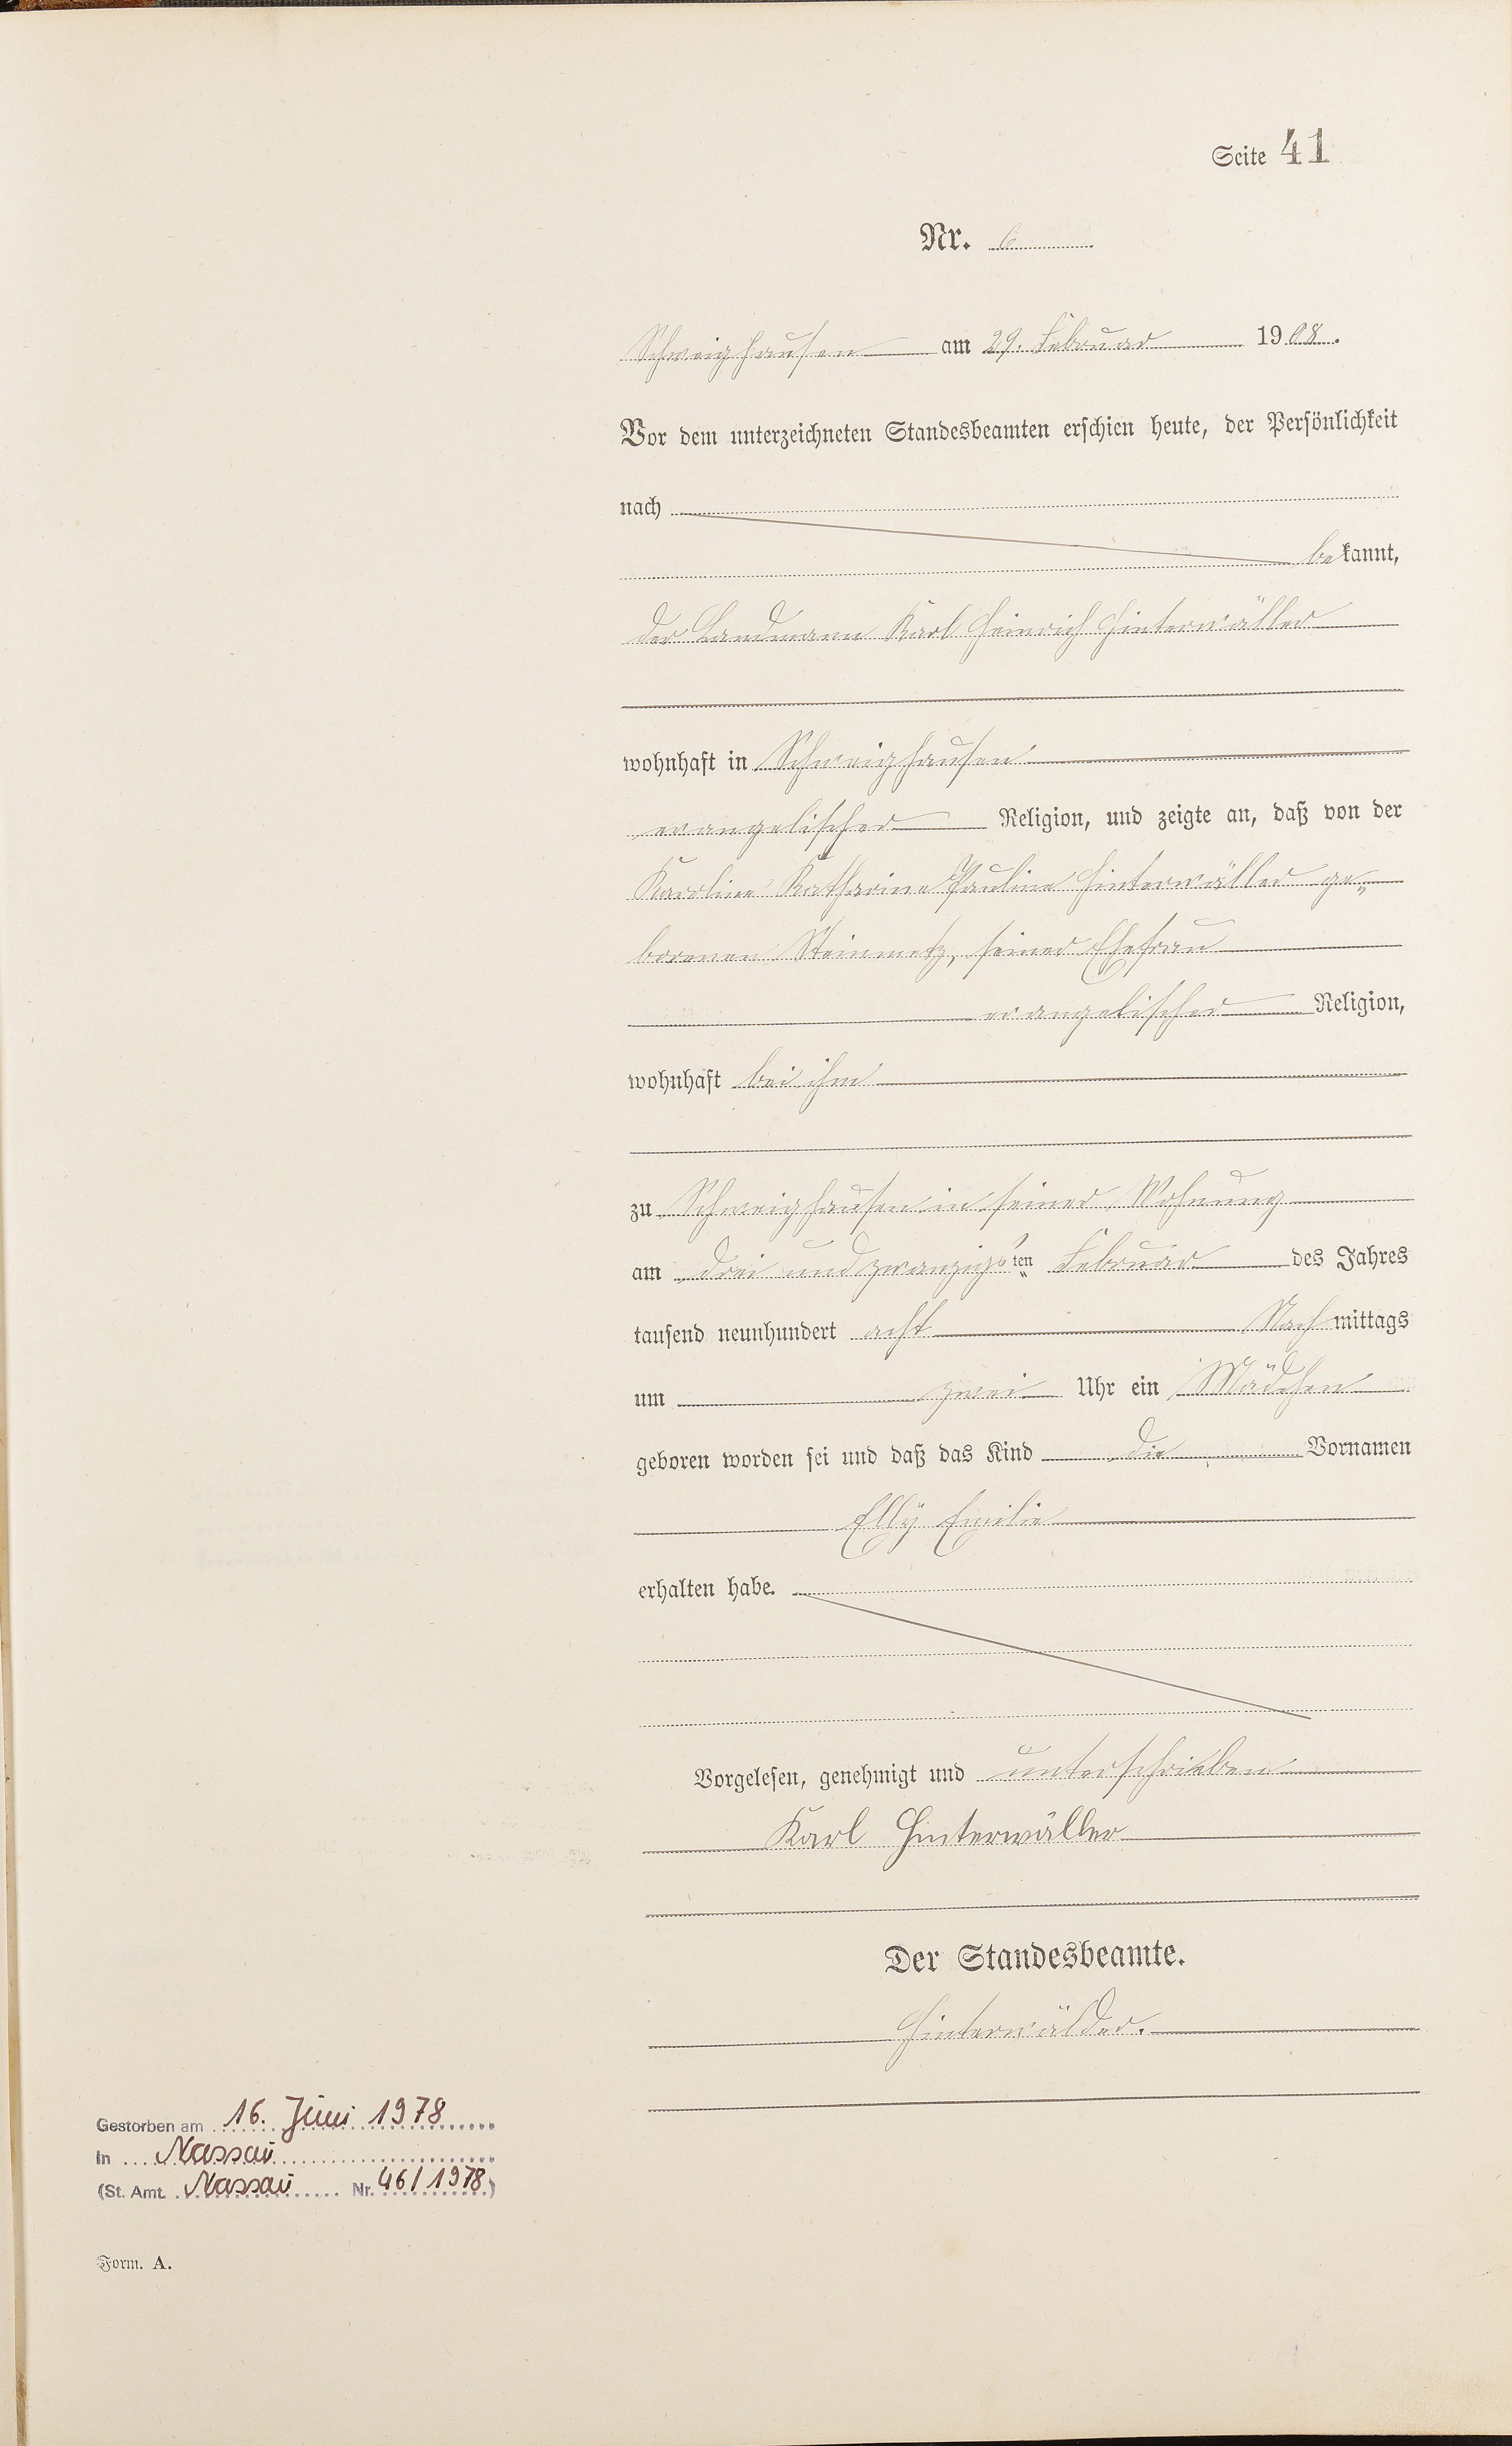 Seite 41
Nr. 6
Schweighausen am 29. Februar 1908.
Vor dem unterzeichneten Standesbeamten erschien heute, der Persönlichkeit
nach
bekannt,
der Landmann Karl Heinrich Hinterwäller
wohnhaft in Schweighausen
evangelischer Religion, und zeigte an, daß von der
Karoline Katharine Pauline Hinterwäller ge„
borenen Steinmetz, seiner Ehefrau
evangelischer Religion,
wohnhaft bei ihm
zu Schweighausen in seiner Wohnung
am drei und zwanzigsten Februar des Jahres
tausend neunhundert acht Nachmittags
um zwei Uhr ein Mädchen
geboren worden sei und daß das Kind die Vornamen
Elly Emilie
erhalten habe.
Vorgelesen, genehmigt und unterschrieben
Karl Hinterwäller
Der Standesbeamte.
Hinterwälder.
Gestorben am 16. Juni 1978
in Nassau
(St. Amt Nassau Nr. 46/1978)
Form. A.